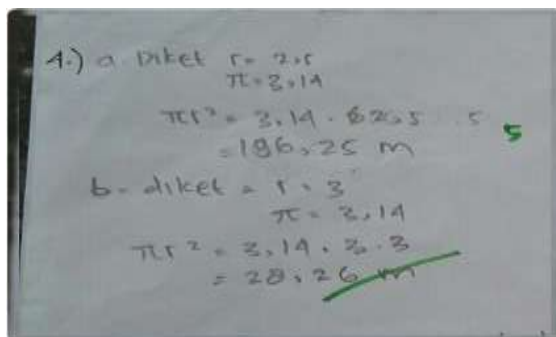 4.) a Diket r = 2,5
π = 3,14
πr² = 3,14 . 62,5 . 5
= 196,25 m
5
b. diket = r = 3
π = 3,14
πr² = 3,14 . 3 . 3
= 28,26 m